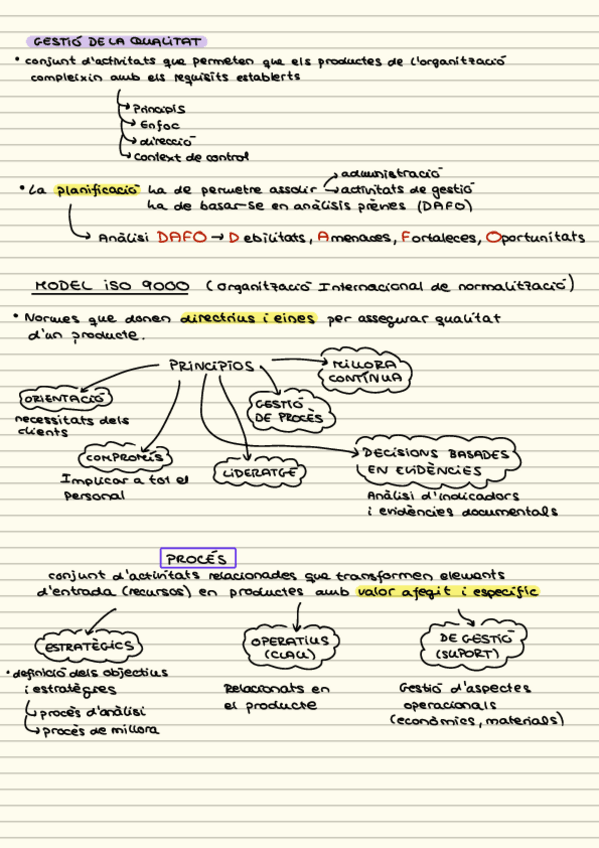 GESTIÓ DE LA QUALITAT
• conjunt d'activitats que permeten que els productes de l'organització
compleixin amb els requisits establerts
Principis
Enfoc
direcció
Context de control
administració
• La planificació ha de permetre assolir activitats de gestió
ha de basar-se en anàlisis prèvies (DAFO)
Anàlisi DAFO → Debilitats, Amenaces, Fortaleces, Oportunitats
MODEL ISO 9000 (Organització Internacional de normalització)
• Normes que donen directrius i eines per assegurar qualitat
d'un producte.
PRINCIPIOS
MILLORA
CONTÍNUA
ORIENTACIÓ
necessitats dels
clients
GESTIÓ
DE PROCÉS
COMPROMÍS
Implicar a tot el
personal
LIDERATGE
DECISIONS BASADES
EN EVIDÈNCIES
Anàlisi d'indicadors
i evidències documentals
PROCÉS
conjunt d'activitats relacionades que transformen elements
d'entrada (recursos) en productes amb valor afegit i específic
ESTRATÈGICS
• definició dels objectius
i estratègies
procés d'anàlisi
procés de millora
OPERATIUS
(CLAU)
Relacionats en
el producte
DE GESTIÓ
(SUPORT)
Gestió d'aspectes
operacionals
(econòmics, materials)